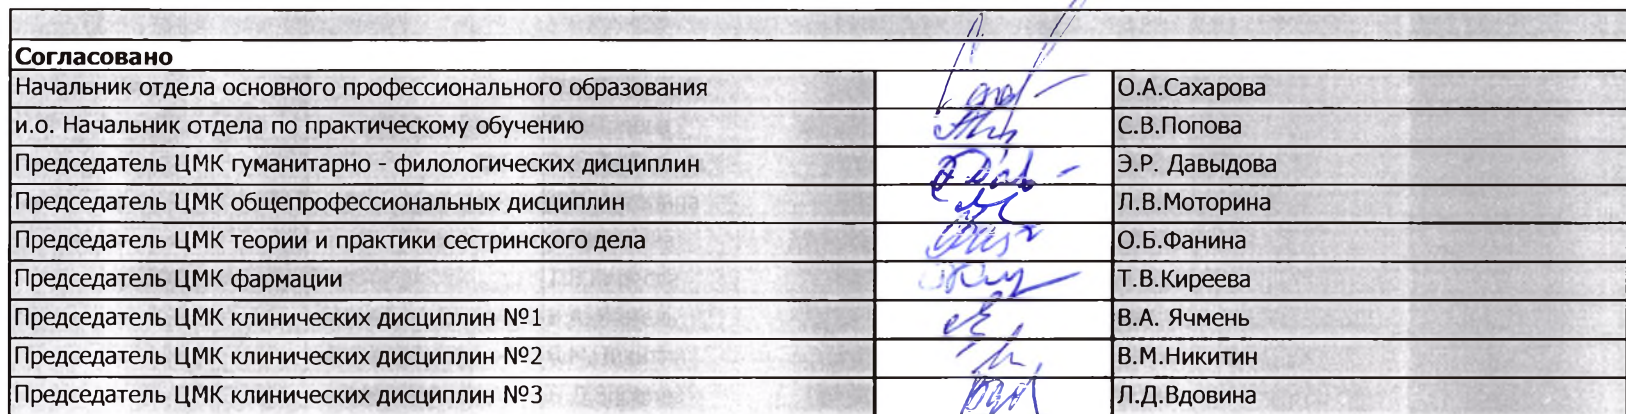 Согласовано
Начальник отдела основного профессионального образования О.А.Сахарова
и.о. Начальник отдела по практическому обучению С.В.Попова
Председатель ЦМК гуманитарно - филологических дисциплин Э.Р. Давыдова
Председатель ЦМК общепрофессиональных дисциплин Л.В.Моторина
Председатель ЦМК теории и практики сестринского дела О.Б.Фанина
Председатель ЦМК фармации Т.В.Киреева
Председатель ЦМК клинических дисциплин №1 В.А. Ячмень
Председатель ЦМК клинических дисциплин №2 В.М.Никитин
Председатель ЦМК клинических дисциплин №3 Л.Д.Вдовина